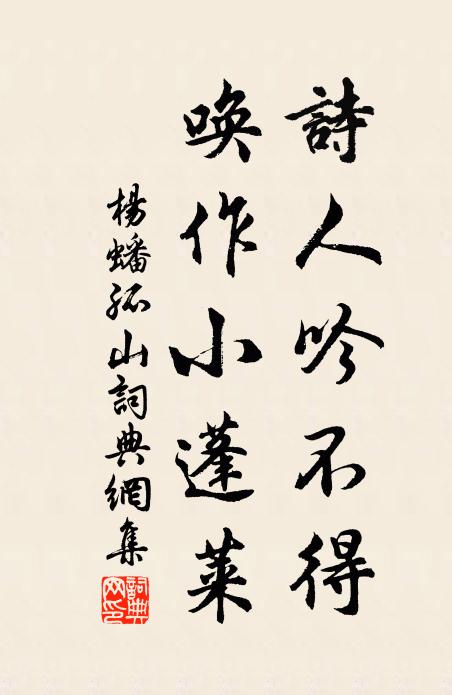 詩人吟不得
喚作小蓬萊
楊蟠孤山詞典網集
詞典网印